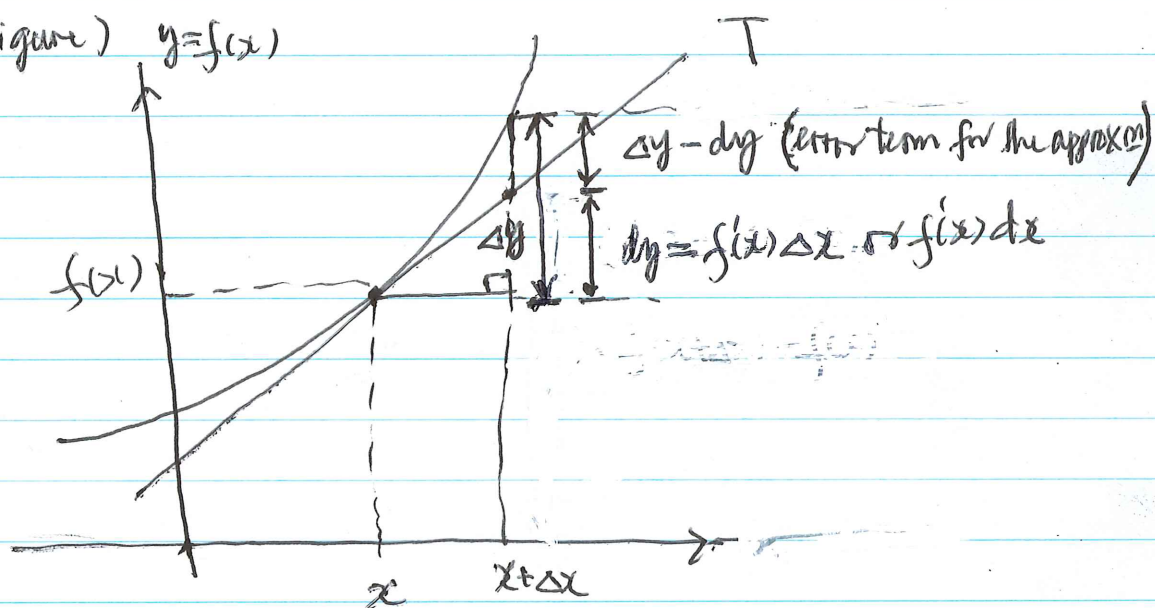 igure) y=f(x)
T
Δy - dy (error term for the approxn)
Δy
dy = f'(x) Δx or f'(x) dx
f(x)
x
x+Δx